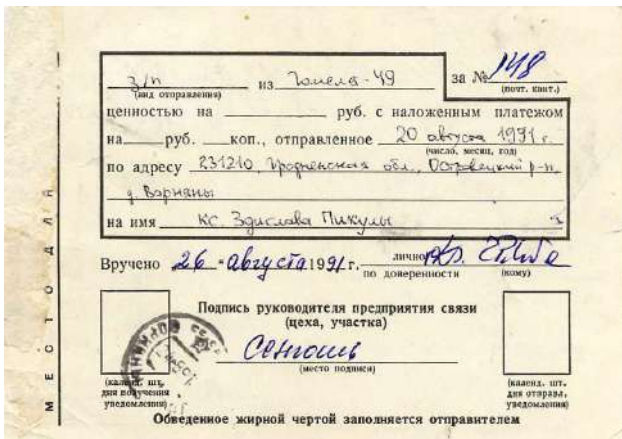 з/п из Гомеля-49 за № 148
(вид отправления) (почт. квит.)
ценностью на руб. с наложенным платежом
на руб. коп., отправленное 20 августа 1991 г.
(число, месяц, год)
по адресу 231210, Гродненская обл., Островецкий р-н,
д. Ворняны
на имя Кс. Здислава Пикулы
Вручено 26 "августа 1991 г. лично
по доверенности (кому)
Подпись руководителя предприятия связи
(цеха, участка)
(место подписи)
(календ. шт.
дня получения
уведомления)
(календ. шт.
дня отправл.
уведомления)
Обведенное жирной чертой заполняется отправителем
МЕСТО ДЛЯ